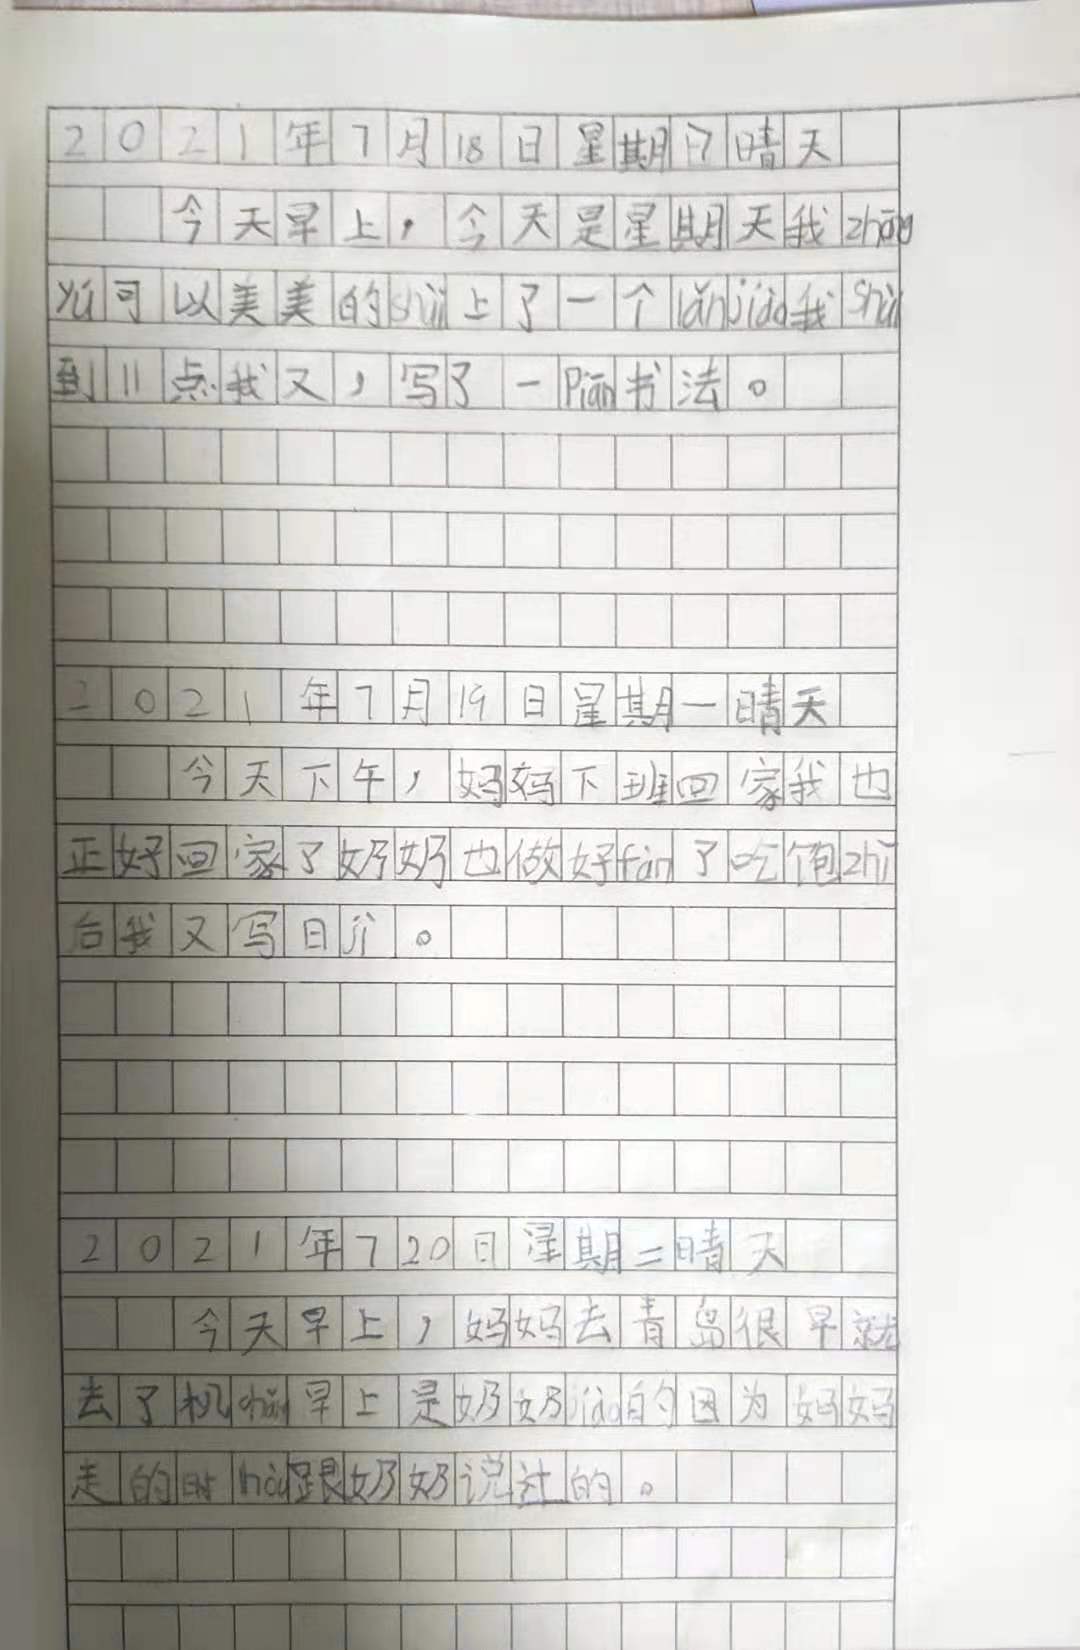 2021年7月18日星期日晴天
今天早上，今天是星期天我zhōng
yú可以美美的shuì上了一个lǎnjiào我shuì
到11点我又，写了一piān书法。
2021年7月19日星期一晴天
今天下午，妈妈下班回家我也
正好回家了奶奶也做好fàn了吃饱zhī
后我又写日jì。
2021年720日星期二晴天
今天早上，妈妈去青岛很早就
去了机chǎng早上是奶奶jiào的因为妈妈
走的时hòu跟奶奶说过的。